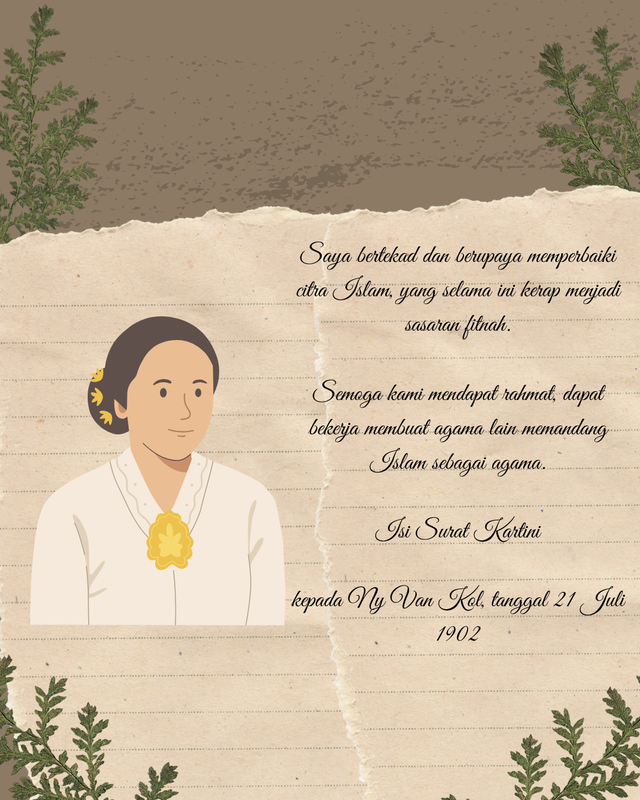 Saya bertekad dan berupaya memperbaiki
citra Islam, yang selama ini kerap menjadi
sasaran fitnah.
Semoga kami mendapat rahmat, dapat
bekerja membuat agama lain memandang
Islam sebagai agama.
Isi Surat Kartini
kepada Ny Van Kol, tanggal 21 Juli
1902